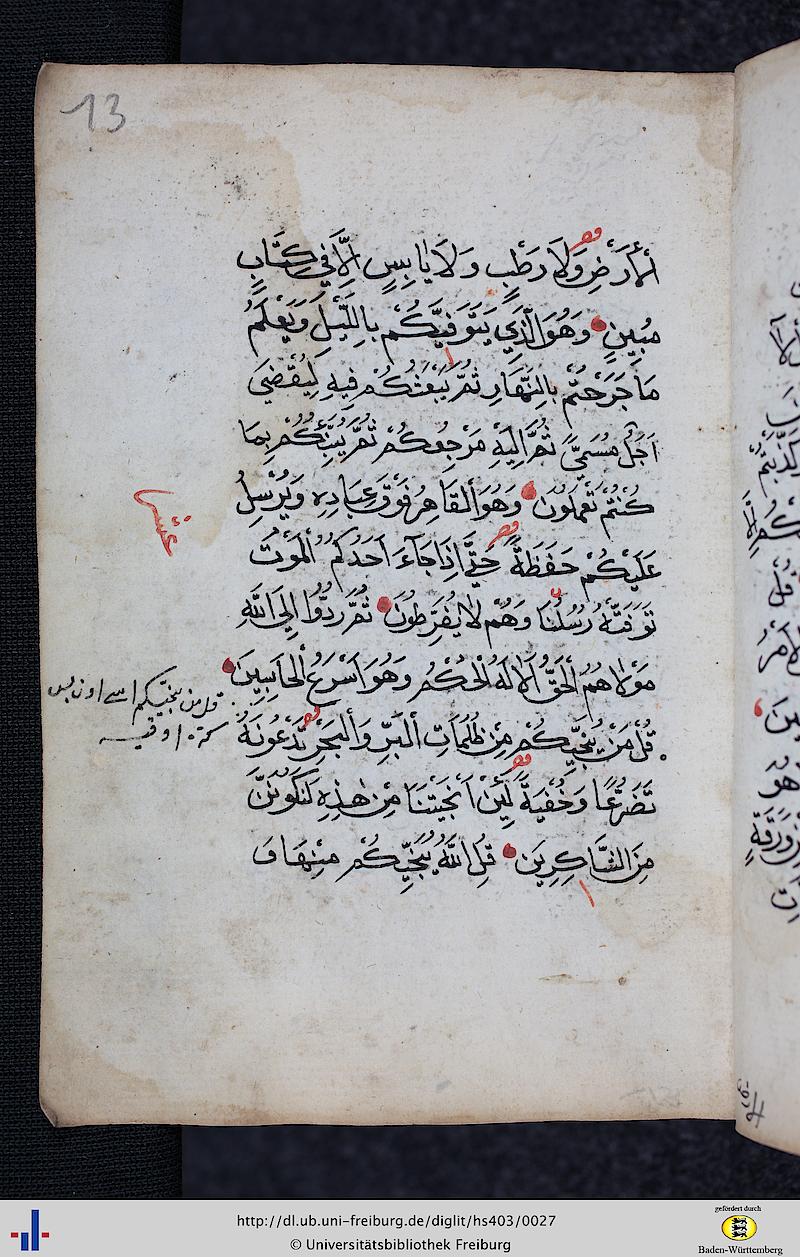 13
اْلأَرْضِ وَلَا رَطْبٍ وَلَا يَابِسٍ اِلَّا فِي كِتَابٍ
مُبِينٍ وَهُوَ الَّذِي يَتَوَفّٰيكُمْ بِاللَّيْلِ وَيَعْلَمُ
مَا جَرَحْتُمْ بِالنَّهَارِ ثُمَّ يَبْعَثُكُمْ فِيهِ لِيُقْضٰيَ
اَجَلٌ مُسَمًّي ثُمَّ اِلَيْهِ مَرْجِعُكُمْ ثُمَّ يُنَبِّئُكُمْ بِمَا
كُنْتُمْ تَعْمَلُونَ وَهُوَ الْقَاهِرُ فَوْقَ عِبَادِهِ وَيُرْسِلُ
عشر
عَلَيْكُمْ حَفَظَةً حَتَّي اِذَا جَاءَ اَحَدَكُمُ الْمَوْتُ
تَوَفَّتْهُ رُسُلُنَا وَهُمْ لَا يُفَرِّطُونَ ثُمَّ رُدُّوا اِلَي اللّٰهِ
مَوْلَاهُمُ الْحَقُّ اَلَا لَهُ الْحُكْمُ وَهُوَ اَسْرَعُ الْحَاسِبِينَ
قل من ينجيكم
قُلْ مَنْ يُنَجِّيكُمْ مِنْ ظُلُمَاتِ الْبَرِّ وَالْبَحْرِ تَدْعُونَهُ
تَضَرُّعًا وَخُفْيَةً لَئِنْ اَنْجَيْتَنَا مِنْ هٰذِهِ لَنَكُونَنَّ
مِنَ الشَّاكِرِينَ قُلِ اللّٰهُ يُنَجِّيكُمْ مِنْهَا وَ
http://dl.ub.uni-freiburg.de/diglit/hs403/0027
© Universitätsbibliothek Freiburg
gefördert durch
Baden-Württemberg